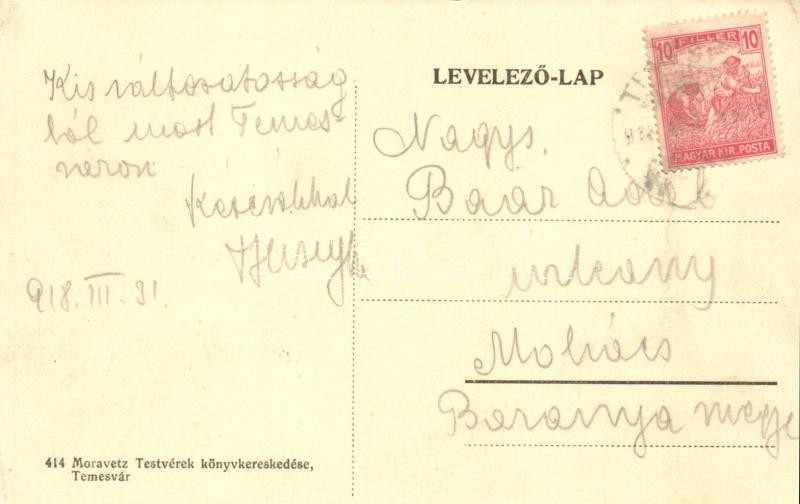 Kis változatosság
ból most Temes-
váron
918. III. 31.
414 Moravetz Testvérek könyvkereskedése,
Temesvár
LEVELEZŐ-LAP
10 FILLER 10
MAGYAR KIR. POSTA
Nagys.
Baár Adél
urleány
Mohács
Baranya megye